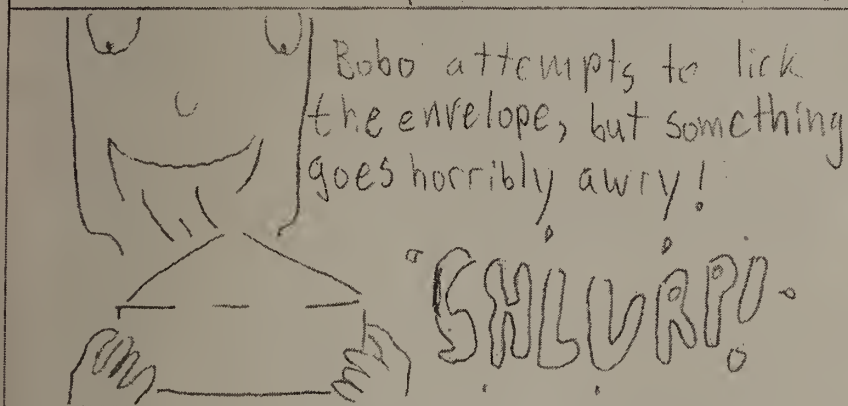 Bobo attempts to lick
the envelope, but something
goes horribly awry!
SHLURP!